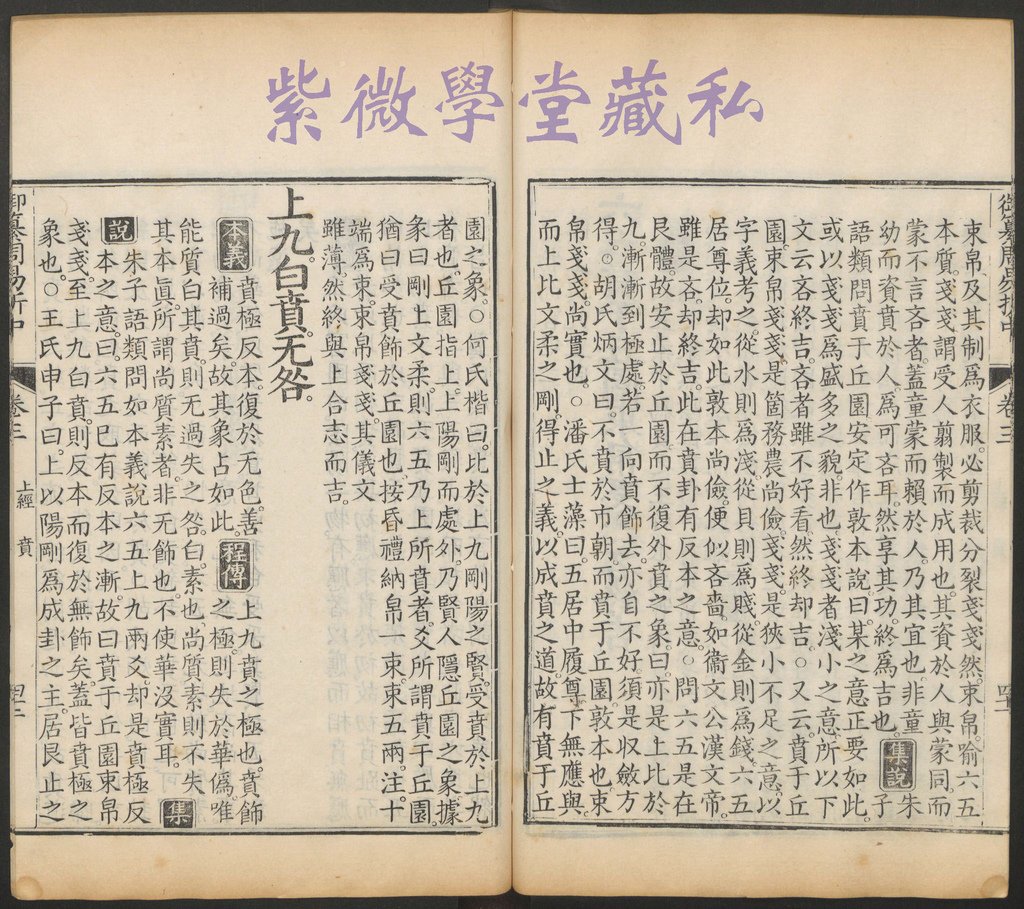 紫微學堂藏私
御纂周易折中
卷三
四十一
束帛及其制爲衣服。必剪裁分裂戔戔然。束帛喻六五
本質。戔戔謂受人翦製而成用也。其資於人與蒙同。而
蒙不言吝者。蓋童蒙而賴於人。乃其宜也。非童
幼而資賁於人。爲可吝耳。然享其功。終爲吉也。集說朱子
語類問賁于丘園安定作敦本說。曰某之意正要如此。
或以戔戔爲盛多之貌。非也。戔戔者淺小之意。所以下
文云吝終吉。吝者雖不好看。然終却吉。○又云。賁于丘
園。束帛戔戔。是箇務農尚儉。戔戔是狹小不足之意。以
字義考之。從水則爲淺。從貝則爲賤。從金則爲錢。六五
居尊位。却如此敦本尚儉。便似吝嗇。如衞文公漢文帝。
雖是吝。却終吉。此在賁卦有反本之意。○問六五是在
艮體。故安止於丘園。而不復外賁之象。曰亦是上比於
九。漸漸到極處。若一向賁飾去。亦自不好。須是收斂方
得。○胡氏炳文曰。不賁於市朝。而賁于丘園。敦本也。束
帛戔戔。尚實也。○潘氏士藻曰。五居中履尊。下無應與。
而上比文柔之剛。得止之義。以成賁之道。故有賁于丘
園之象。○何氏楷曰。比於上九剛陽之賢。受賁於上九
者也。丘園指上。上陽剛而處外。乃賢人隱丘園之象。據
彖曰剛上文柔。則六五乃上所賁者。爻所謂賁于丘園。
猶曰受賁飾於丘園也。按昏禮納帛一束。束五兩。注。十
端爲束。束帛戔戔。其儀文
雖薄。然終與上合志而吉。
上九。白賁无咎。
本義賁極反本。復於无色。善補過矣。故其象占如此。程傳上九賁之極也。賁飾之極。則失於華僞。唯
能質白其賁。則无過失之咎。白。素也。尚質素則不失
其本眞。所謂尚質素者。非无飾也。不使華沒實耳。集
說朱子語類問如本義說六五上九兩爻。却是賁極反本之意。曰。六五已有反本之漸。故曰賁于丘園束帛
戔戔。至上九白賁。則反本而復於無飾矣。蓋皆賁極之
象也。○王氏申子曰。上以陽剛爲成卦之主。居艮止之
御纂周易折中
卷三
上經 賁
四十二